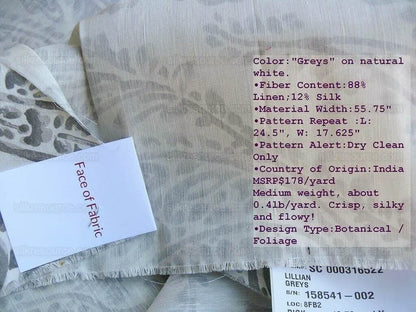 Color:"Greys" on natural
white.
•Fiber Content:88%
Linen;12% Silk
•Material Width:55.75"
•Pattern Repeat :L:
24.5", W: 17.625"
•Pattern Alert:Dry Clean
Only
•Country of Origin:India
MSRP$178/yard
Medium weight, about
0.4lb/yard. Crisp, silky
and flowy!
•Design Type:Botanical /
Foliage
Face of Fabric
SC 000316522
LILLIAN
GREYS
B/N: 158541-002
LOC: 8FB2